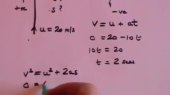 +ve
s?
-ve
u = 20 m/s
v = u + at
0 = 20 - 10t
10t = 20
t = 2 secs
v² = u² + 2as
0 =